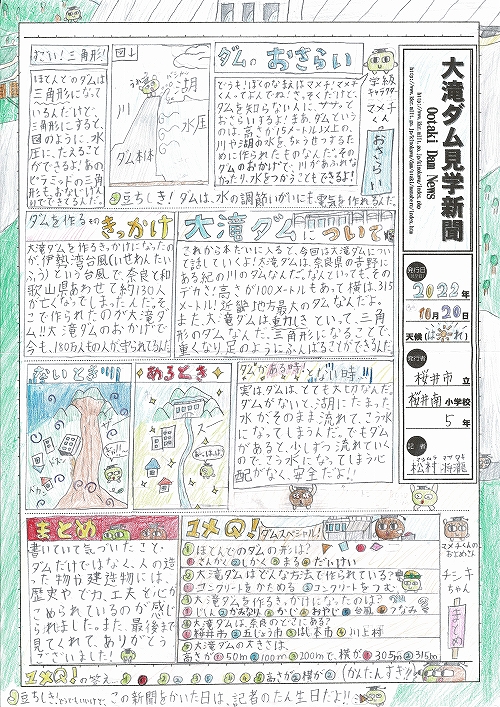 大滝ダム見学新聞
Ootaki Dam News
発行日
2022年
10月20日
天候(は晴れ)
発行者
桜井市 立
桜井南 小学校
5 年
記者
松村 将瀧
ダムのおさらい
学級
キャラクター
マメチくん
おさらい
どうも!ぼくのなまえはマメチ!マメチ
ダムを知らない人に、ササッて
おさらいするよ!まあ、ダムという
のは、高さが15メートル以上の、
川や湖の水をちょうせつするた
めに作られたものなんだ。その
ダムのおかげで、川があふれな
かったり、水をつかうこともできるよ!
豆ちしき! ダムは、水の調節いがいにも電気を作れるんだ。
図↓
湖
川
水圧
ダム本体
すごい!三角形!
ほとんどのダムは
三角形になって
いるんだけど、
三角形にすると、
図のように、水
圧に、たえること
ができるよ!あの
ピラミッドの三角
形も、ふんばる
大滝ダムについて
これから本だいに入ると、今回は大滝ダムについ
て話していくよ!大滝ダムは、奈良県の吉野に
ある紀の川のダムなんだ。なんといっても、その
デカさ!高さが100メートルもあって横は、315
メートル!近畿地方最大のダムなんだよ。
また、大滝ダムは重力しきといって、三角
形のダムなんだ。三角形になることで、
重くなり足のようにふんばることができるんだ。
ダムを作るそのきっかけ
大滝ダムを作るきっかけになった
のが、伊勢湾台風(いせわんたい
ふう)という台風で、奈良と和
歌山県あわせて約130人
が亡くなってしまったんだ。そ
こで作られたのが大滝ダ
ム!!大滝ダムのおかげで
今も、180万人もの人が守られてるんだ
ないとき!!
あるとき
ダムがある時!とない時!!
実は、ダムは、とても大切なんだ。
ダムがないと、湖にたまった
水がそのまま流れて、こう水
になってしまうんだ。でもダム
があると、少しずつ流れていく
ので、こう水になってしまう心
配がなく、安全だよ!!
まとめ
書いていて気づいたこと・
ダムだけではなく、人の造っ
た物や建造物には、
歴史や、でカ、工夫と心が
こめられているのが感じ
られました。また、最後まで
見てくれて、ありがとう
ございました!
ユメQ! ダムスペシャル!
①ほとんどのダムの形は?
①さんかく②しかく③まる④だいけい
②大滝ダムはどんな方式で作られている?
①コンクリートをかためる②コンクリートをつむ
③大滝ダムを作るきっかけになったのは?
①じしん②かみなり③かじ④おやじ⑤台風⑥つなみ
④大滝ダムは、奈良のどこにある?
①桜井市②五じょう市③はし本市④川上村
⑤大滝ダムの大きさは、
高さが①50m②100m③200mで、横が①305m②315m
マメチくんの
おとめさん
チシキ
ちゃん
ユメQ!の答え
(かんたんすぎ?)
豆ちしき! この新聞をかいた日は、記者のたん生日だよ!!